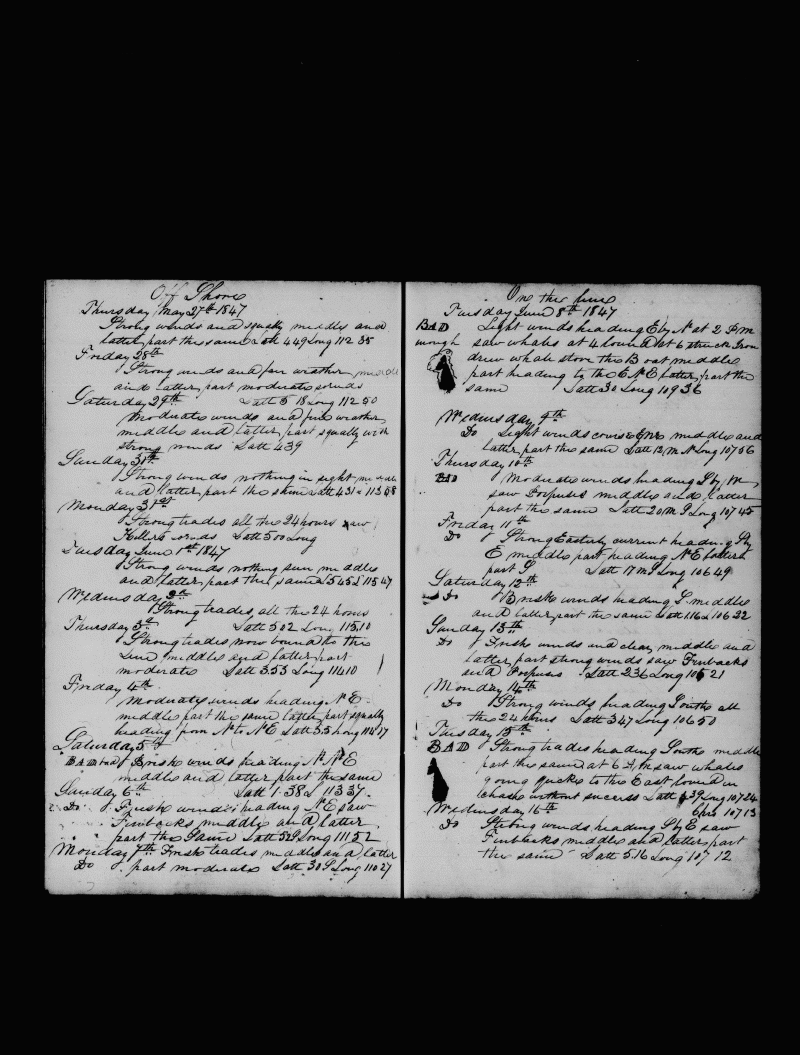 Off Shore
Thursday May 27th 1847
Strong winds and squally middle and
latter part the same Latt 449 Long 112 35
Friday 28th
Strong winds and fair weather middle
and latter part moderate winds
Saturday 29th Latt 5 18 Long 112 50
Moderate winds and fine weather
middle and latter part squally with
strong winds Latt 439
Sunday 30th
Strong winds nothing in sight middle
and latter part the same Latt 431 113 58
Monday 31st
Strong trades all the 24 hours saw
Killers Latt 500 Long
Tuesday June 1st 1847
Strong winds nothing seen middle
and latter part the same L 545 L 115 47
Wednesday 2nd
Strong trades all the 24 hours
Thursday 3d Latt 502 Long 115 10
Strong trades now bound to the
Line middle and latter part
moderate Latt 353 Long 114 10
Friday 4th
Moderate winds heading N E
middle part the same latter part squally
heading from N to N E Latt 35 Long 114 17
Saturday 5th
Brisk winds heading N N E
middle and latter part the same
Sunday 6th Latt 1.38 L 113 37
Do Fresh winds heading N E saw
Finbacks middle and latter
part the same Latt 52 Long 111 52
Monday 7th Fresh trades middle and latter
Do part moderate Latt 30 S Long 110 27
On the line
Tuesday June 8th 1847
BAD Light winds heading E by N at 2 P M
saw whales at 4 lowered at 6 struck Iron
drew whale stove the Boat middle
part heading to the E N E latter part the
same Latt 30 Long 109 36
Wednesday 9th
Do Light winds course ENE middle and
latter part the same Latt 12 M N Long 107 56
Thursday 10th
BAD Moderate winds heading S by W
saw Porpuses middle and latter
part the same Latt 20 M S Long 107 45
Friday 11th
Do Strong Easterly current heading S by
E middle part heading N E latter
part S Latt 17 M S Long 106 49
Saturday 12th
Do Brisk winds heading S middle
and latter part the same Latt 116 L 106 22
Sunday 13th
Do Brisk winds and clear middle and
latter part strong winds saw Finbacks
and Porpuses Latt 236 Long 105 21
Monday 14th
Do Strong winds heading South all
the 24 hours Latt 347 Long 106 50
Tuesday 15th
BAD Strong trades heading South middle
part the same at 6 A M saw whales
going quick to the East lowered in
chase without success Latt 39 Long 107 24
Wednesday 16th 107 13
Do Strong winds heading S by E saw
Finbacks middle and latter part
the same Latt 5.16 Long 107 12